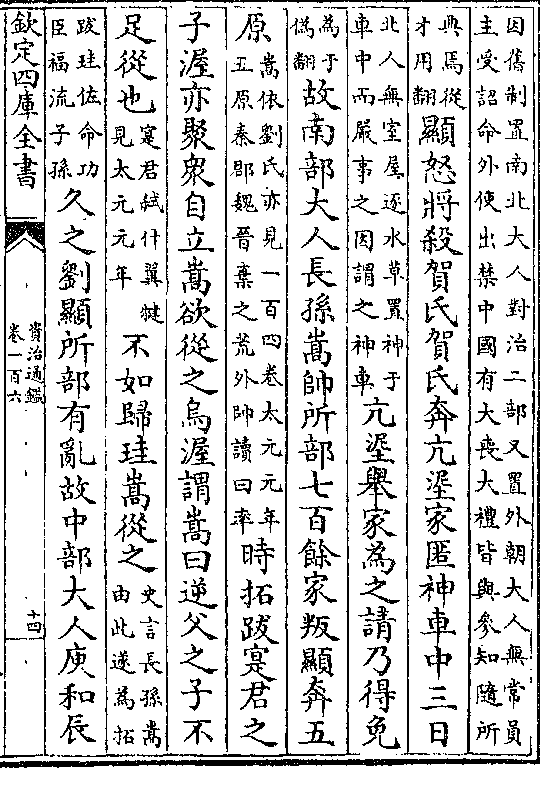 因舊制置南北大人對治二部又置外朝大人無常員
主受詔命外使出禁中國有大喪大禮皆與參知隨所
典焉從
才用翻
顯怒將殺賀氏賀氏奔亢埿家匿神車中三日
北人無室屋逐水草置神于
車中而嚴事之因謂之神車
亢埿舉家為之請乃得免
為于
偽翻
故南部大人長孫嵩帥所部七百餘家叛顯奔五
原
嵩依劉氏亦見一百四卷太元元年
五原秦郡魏晉棄之荒外帥讀曰率
時拓跋寔君之
子渥亦聚衆自立嵩欲從之烏渥謂嵩曰逆父之子不
足從也
寔君弑什翼犍
見太元元年
不如歸珪嵩從之
史言長孫嵩
由此遂為拓
跋珪佐命功
臣福流子孫
久之劉顯所部有亂故中部大人庾和辰
欽定四庫全書
資治通鑑
卷一百六
十四